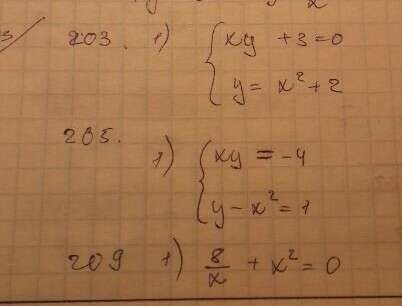 203. 1) { xy + 3 = 0
y = x² + 2
205.
1) { xy = -4
y - x² = 1
209 1) 8/x + x² = 0